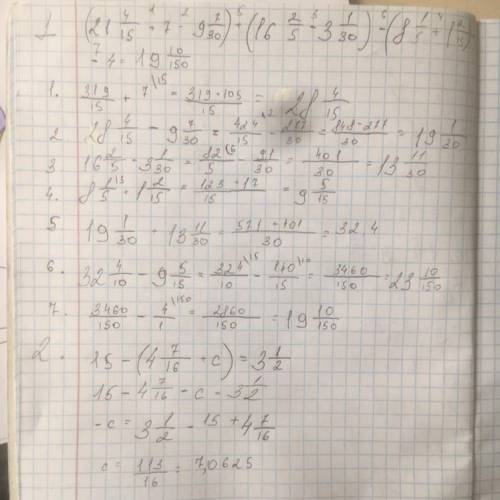 1 (21 4/15 + 7 - 9 7/30) + (16 2/5 - 3 1/30) - (8 1/5 + 1 2/15)
- 4 = 19 10/150
1. 319/15 + 7 \15 = 319+105/15 = 28 4/15
2 28 4/15 - 9 7/30 = 424/15 \2 - 277/30 = 848-277/30 = 19 1/30
3 16 2/5 - 3 1/30 = 82/5 \6 - 91/30 = 401/30 = 13 11/30
4. 8 1/5 \3 + 1 2/15 = 123+17/15 = 9 5/15
5 19 1/30 + 13 11/30 = 571+401/30 = 32,4
6. 32 4/10 - 9 5/15 = 324/10 \15 - 140/15 \10 = 3460/150 = 23 10/150
7. 3460/150 - 4/1 \150 = 2860/150 = 19 10/150
2. 15 - (4 7/16 + c) = 3 1/2
15 - 4 7/16 - c = 3 1/2
-c = 3 1/2 - 15 + 4 7/16
c = 113/16 = 7,0625